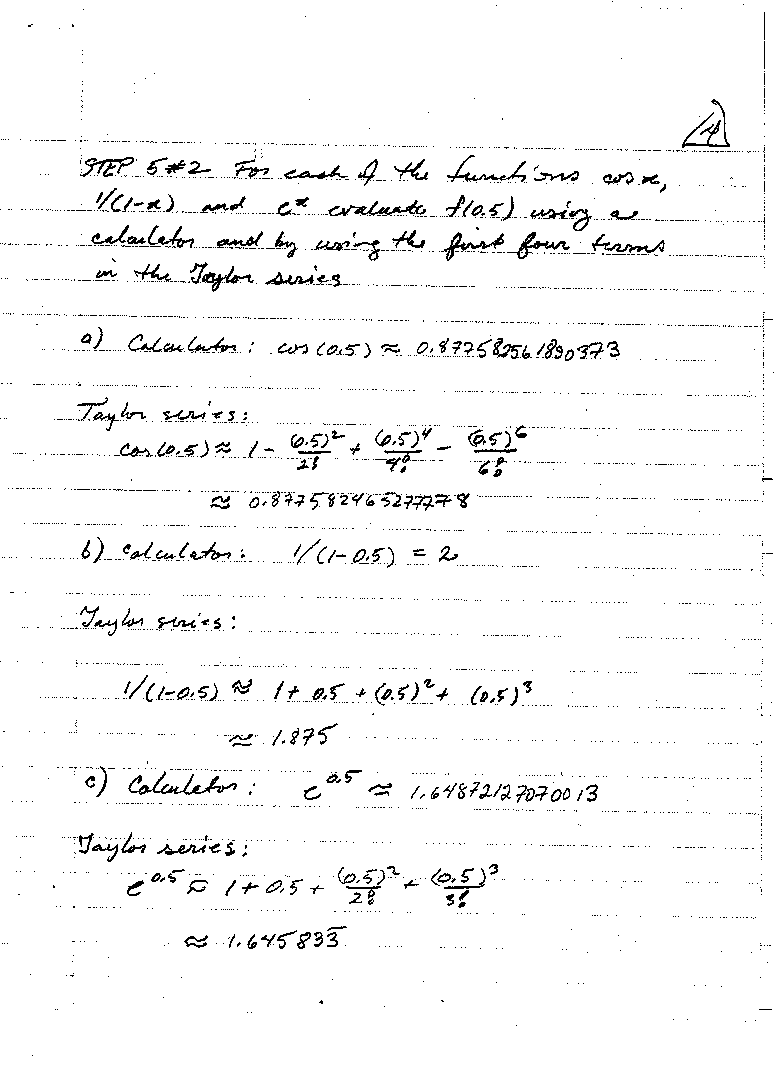 14
STEP 5 #2 For each of the functions cos x,
1/(1-x) and e^x evaluate f(0.5) using a
calculator and by using the first four terms
in the Taylor series
a) Calculator: cos(0.5) ≈ 0.877582561890373
Taylor series:
cos(0.5) ≈ 1 - (0.5)^2/2! + (0.5)^4/4! - (0.5)^6/6!
≈ 0.877582465277778
b) Calculator: 1/(1-0.5) = 2
Taylor series:
1/(1-0.5) ≈ 1 + 0.5 + (0.5)^2 + (0.5)^3
≈ 1.875
c) Calculator: e^0.5 ≈ 1.64872127070013
Taylor series:
e^0.5 ≈ 1 + 0.5 + (0.5)^2/2! + (0.5)^3/3!
≈ 1.645833